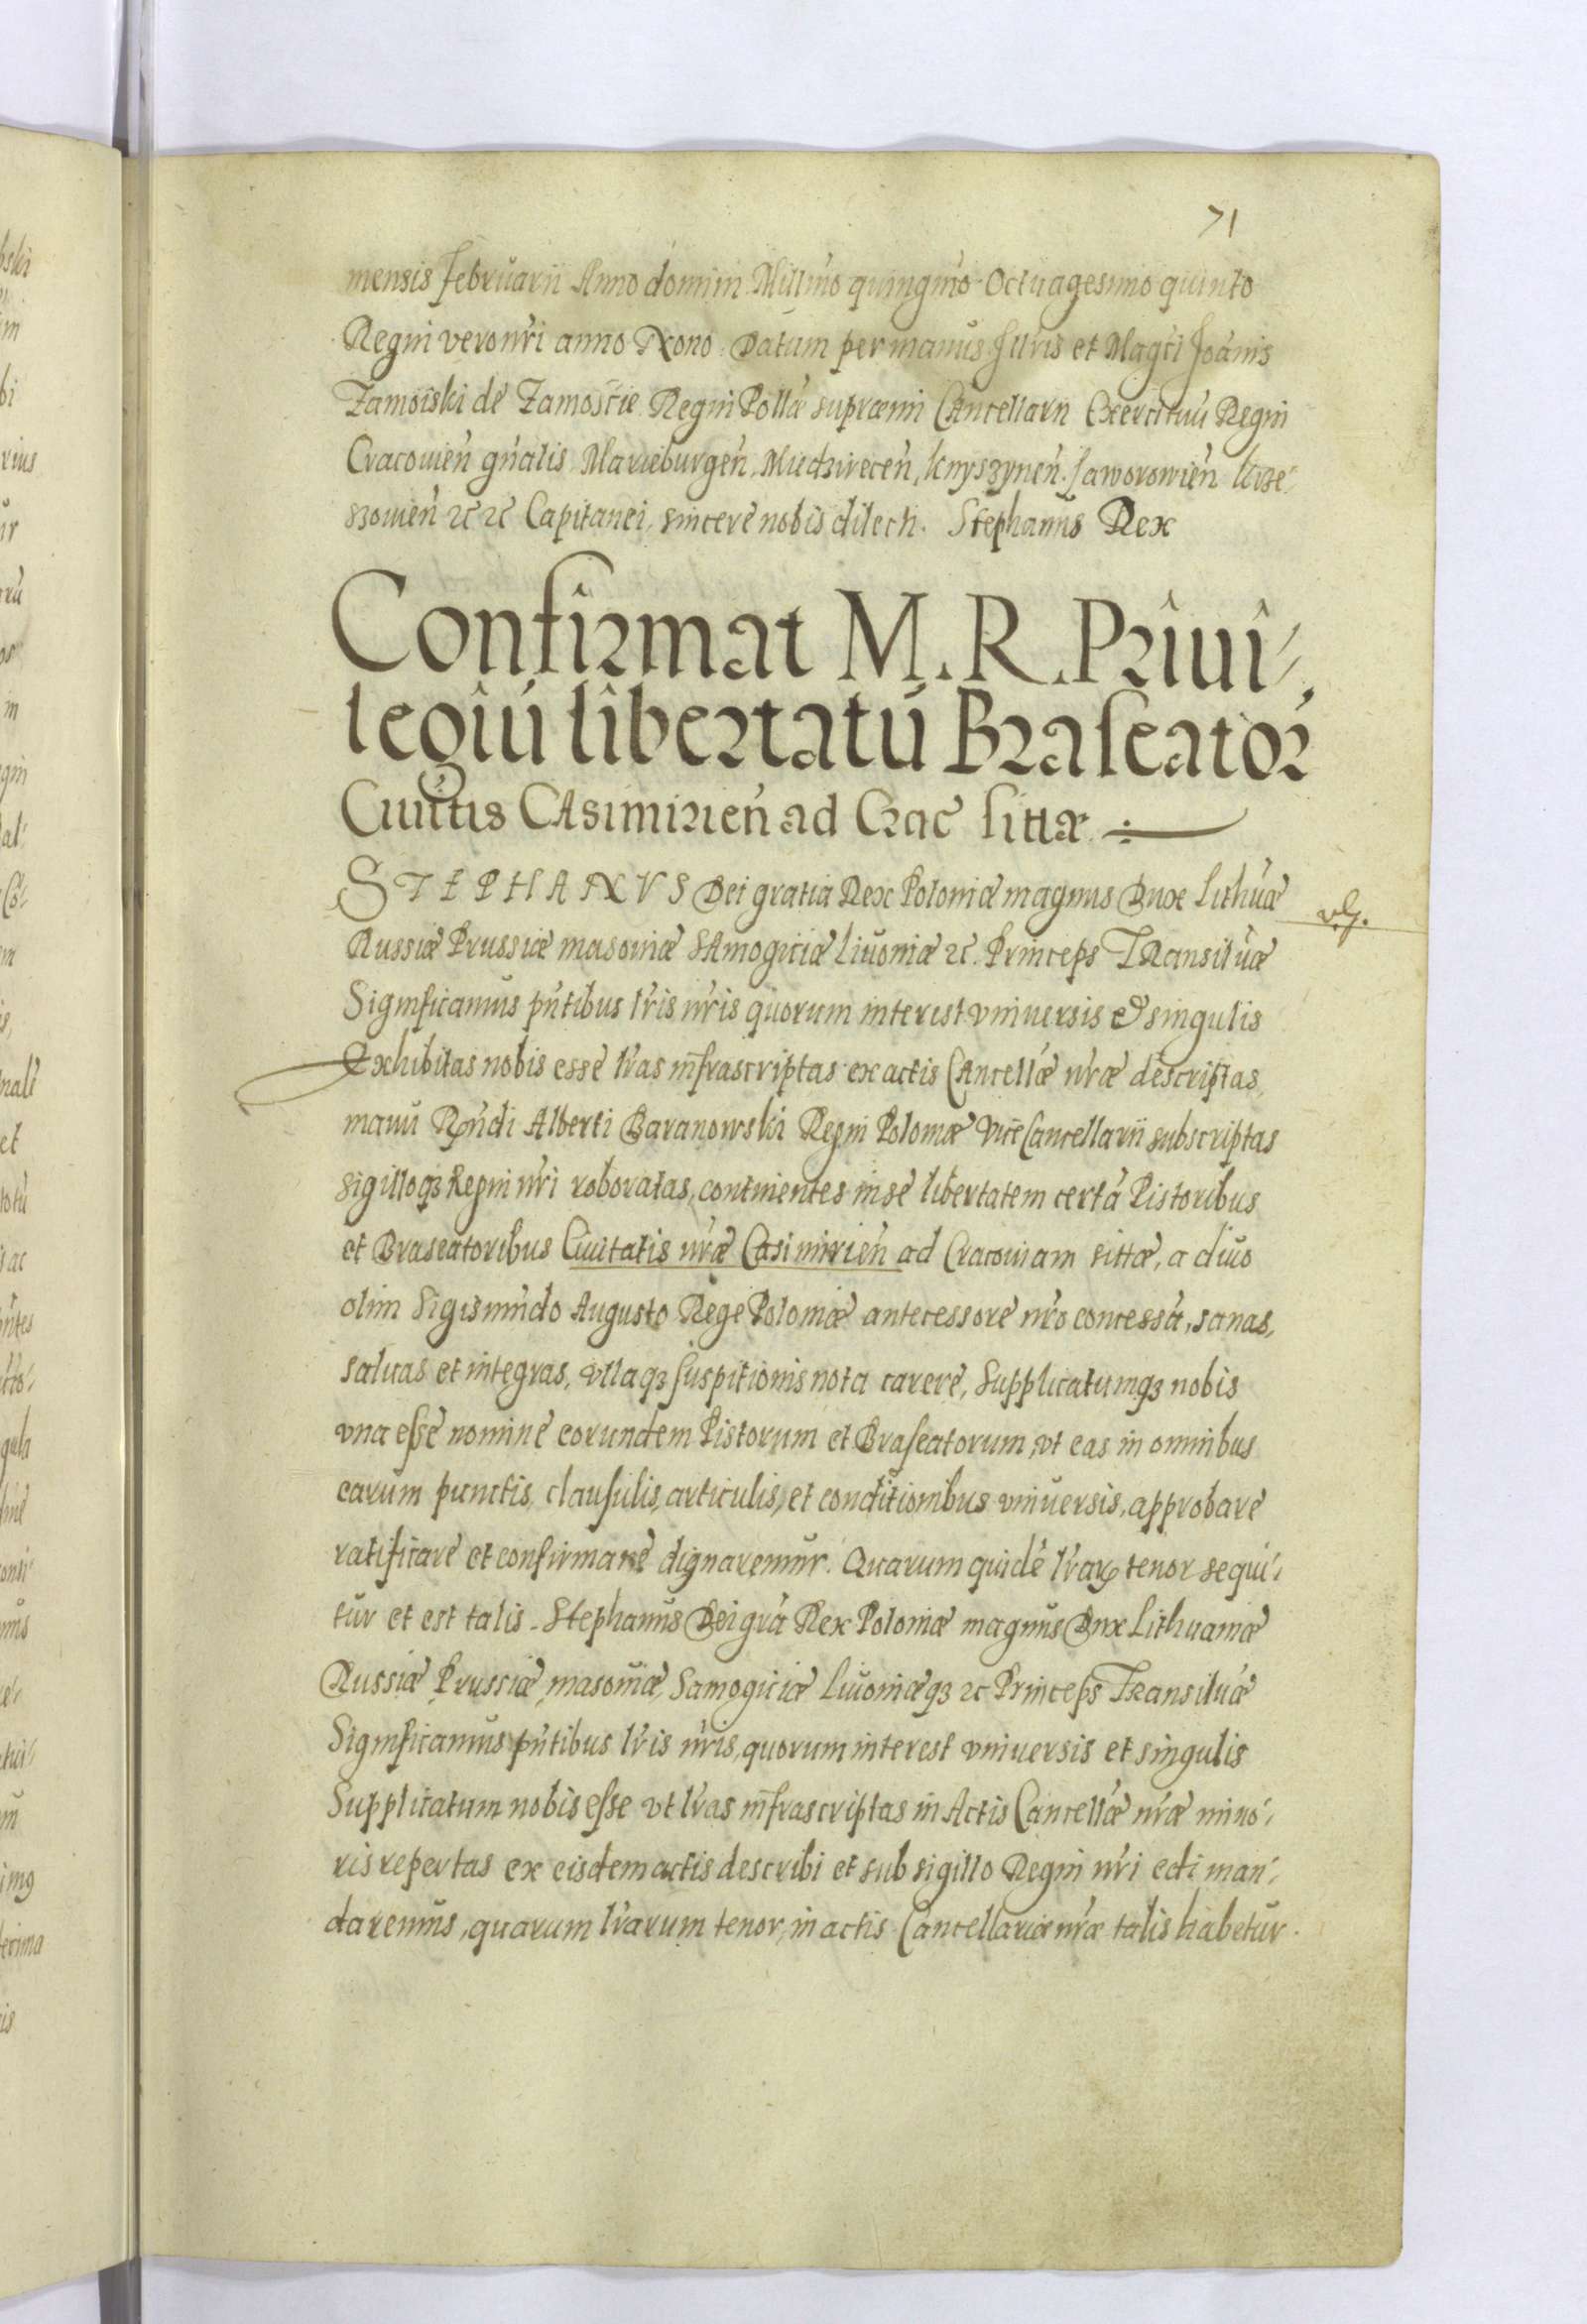 71
mensis februarii Anno domini Mille̅mo quingm̃o Octuagesimo quinto
Regni vero nr̃i anno Nono Datum per manus Illr̃is et Magci Joãnis
Zamoiski de Zamoscie Regni Pollæ supræmi Cancellarii Exercituũ Regni
Cracouien̄ gn̄alis Marieburgen̄, Miedzirecen̄, Knyszynen̄. Jaworowien̄
szouien̄ ꝛc ꝛc Capitanei, sincere nobis dilecti. Stephanus Rex
Confirmat M. R. Priui⸗
legiũ libertatũ Braseator̃
Ciuitis Casimirien̄ ad Crac̃ sittæ
STEPHANVS Dei gratia Rex Poloniæ magnus Dux Lithuæ
Russiæ Prussiæ masouiæ SAmogitiæ Liuoniæ ꝛc. Princeps TRansiluæ
Significamus pn̄tibus lr̃is nr̃is quorum interest vniuersis & singulis
Exhibitas nobis esse lr̃as infrascriptas ex actis Cancellæ nr̃æ descriptas,
manu Rn̄di Alberti Baranowski Regni Poloniæ ViceCancellarii subscriptas
sigilloqꝫ Regni nr̃i roboratas, continentes in se libertatem certã Pistoribus
et Braseatoribus Ciuitatis nr̃æ Casimirien̄ ad Cracouiam sittæ, a diuo
olim Sigismũdo Augusto Rege Poloniæ antecessore nr̃o concessã, sanas,
saluas et integras, vllaqꝫ suspitionis nota carere, Supplicatumqꝫ nobis
vna esse nomine eorundem Pistorum et Braseatorum, vt eas in omnibus
earum punctis, clausulis, articulis, et conditionibus vniuersis, approbare
ratificare et confirmare dignaremur. Quarum quidẽ lr̃aꝝ tenor sequi⸗
tur et est talis. Stephanus Dei gr̃a Rex Poloniæ magnus Dux Lithuaniæ
Russiæ Prussiæ, masouiæ, Samogitiæ Liuoniæqꝫ ꝛc Princeps TRansiluæ
Significamus pn̄tibus lr̃is nr̃is, quorum interest vniuersis et singulis
Supplicatum nobis esse vt lr̃as infrascriptas in Actis Cancellæ nr̃æ mino⸗
ris repertas ex eisdem actis describi et sub sigillo Regni nr̃i edi man⸗
daremus, quarum lr̃arum tenor, in actis Cancellariæ nr̃æ talis habetur.